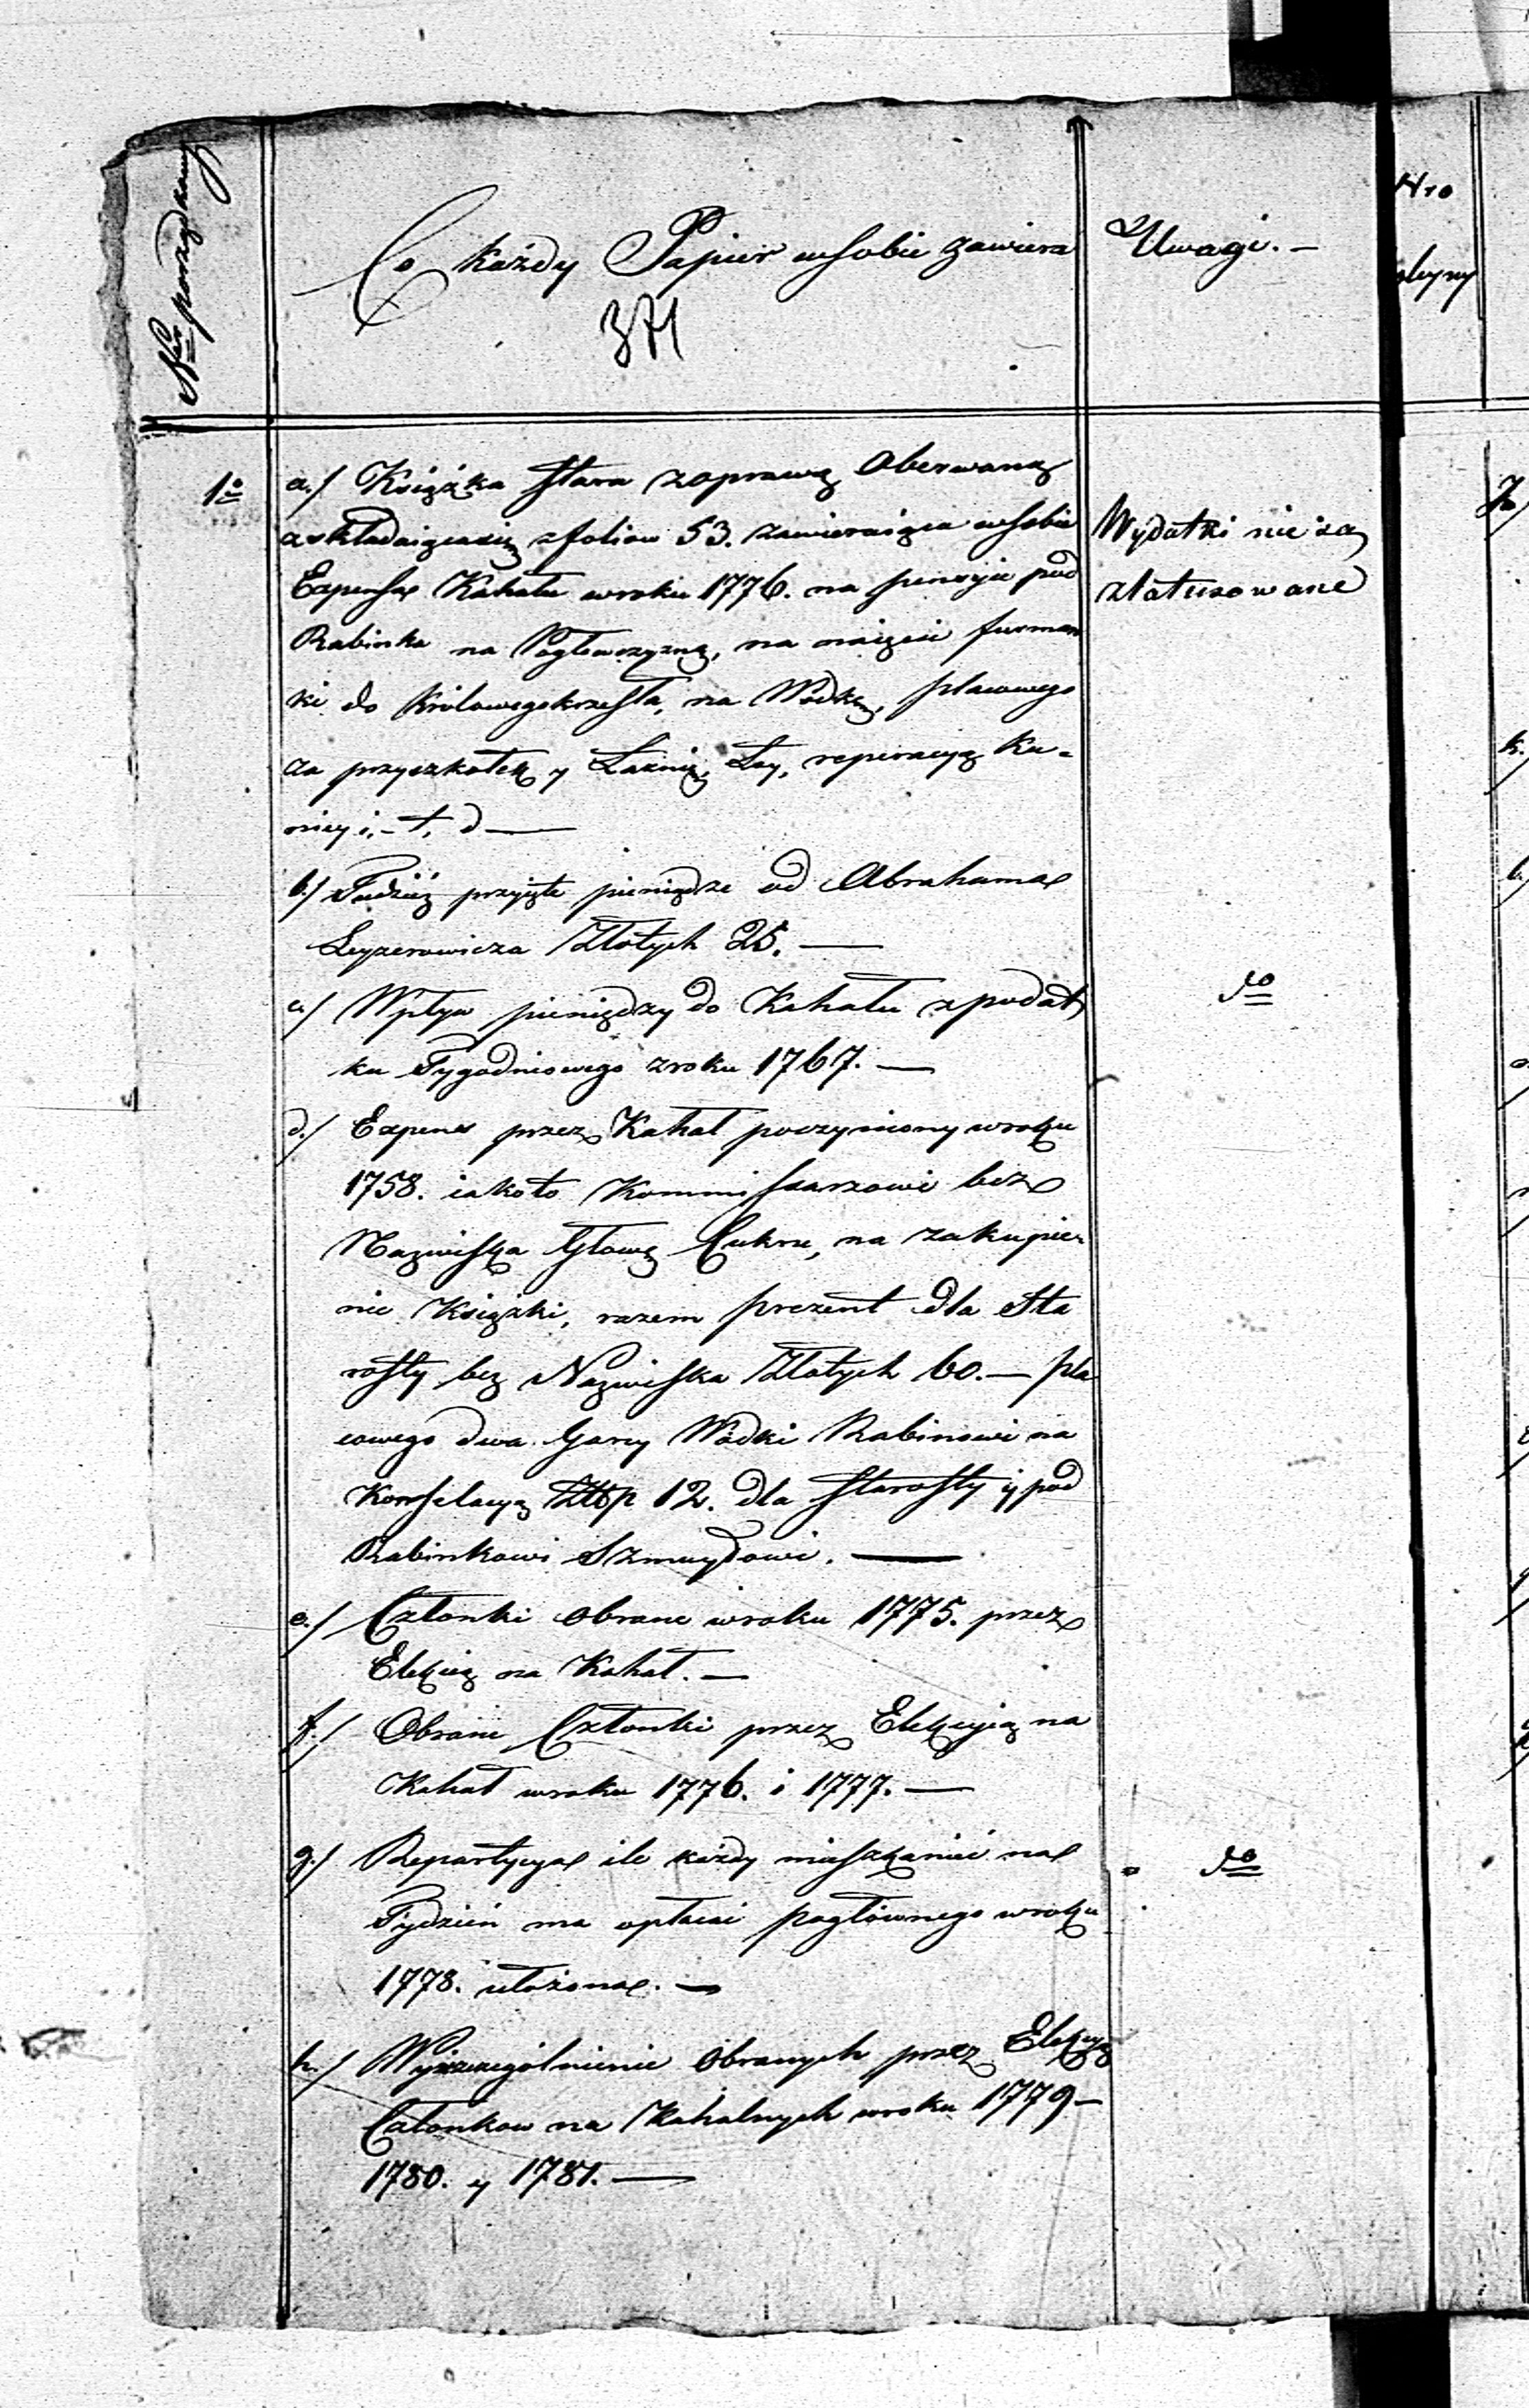 Nro porządkowy
Co każdy Papier wsobie zawiera
Uwagi. —
Nro
371
1o
a./ Książka stara zoprawą oberwaną
askładaiącasię zfoliow 53. zawieraiąca wsobie
Expensa Kahału wroku 1776. na pensyie pod
Rabinka na Pogłowszyznę, na naięcie furman
ki do Królowegokrzesła, na Wódkę, placowego
za przyszkołek y Łaznię, Łoy, reperacyą Ku-
nicy i, - t, d —
Wydatki nie są
zlatusowane
b./ Tudzież przyięte pieniądze od Abrahama
Leyzerowicza Złotych 25. —
c/ Wpływ pieniędzy do Kahału z podat
ku Tygodniowego zroku 1767. —
do
d./ Expens przez Kahał poczyniony wroku
1758. iakoto Kommissarzowi bez
Nazwiska Głowę Cukru, na zakupie-
nie Książki, razem prezent dla Sta
rosty bez Nazwiska Złotych 60. — pla
cowego dwa Garcy Wódki Rabinowi na
Konsolacyą Złtp 12. dla Starosty y pod
Rabinkowi Szmuydowi. —
e./ Członki obrane wroku 1775. przez
Elekcią na Kahał. —
f./ Obrane Członki przez Elekcyią na
Kahał wroku 1776. i 1777. —
g./ Repartycya ile każdy mieszkaniec na
Tydzień ma opłacać pogłównego wroku
1778. ułożona. —
do
h./ Wyszczególnienie obranych przez Elekcyą
Członkow na Kahalnych wroku 1779 —
1780. y 1781. —